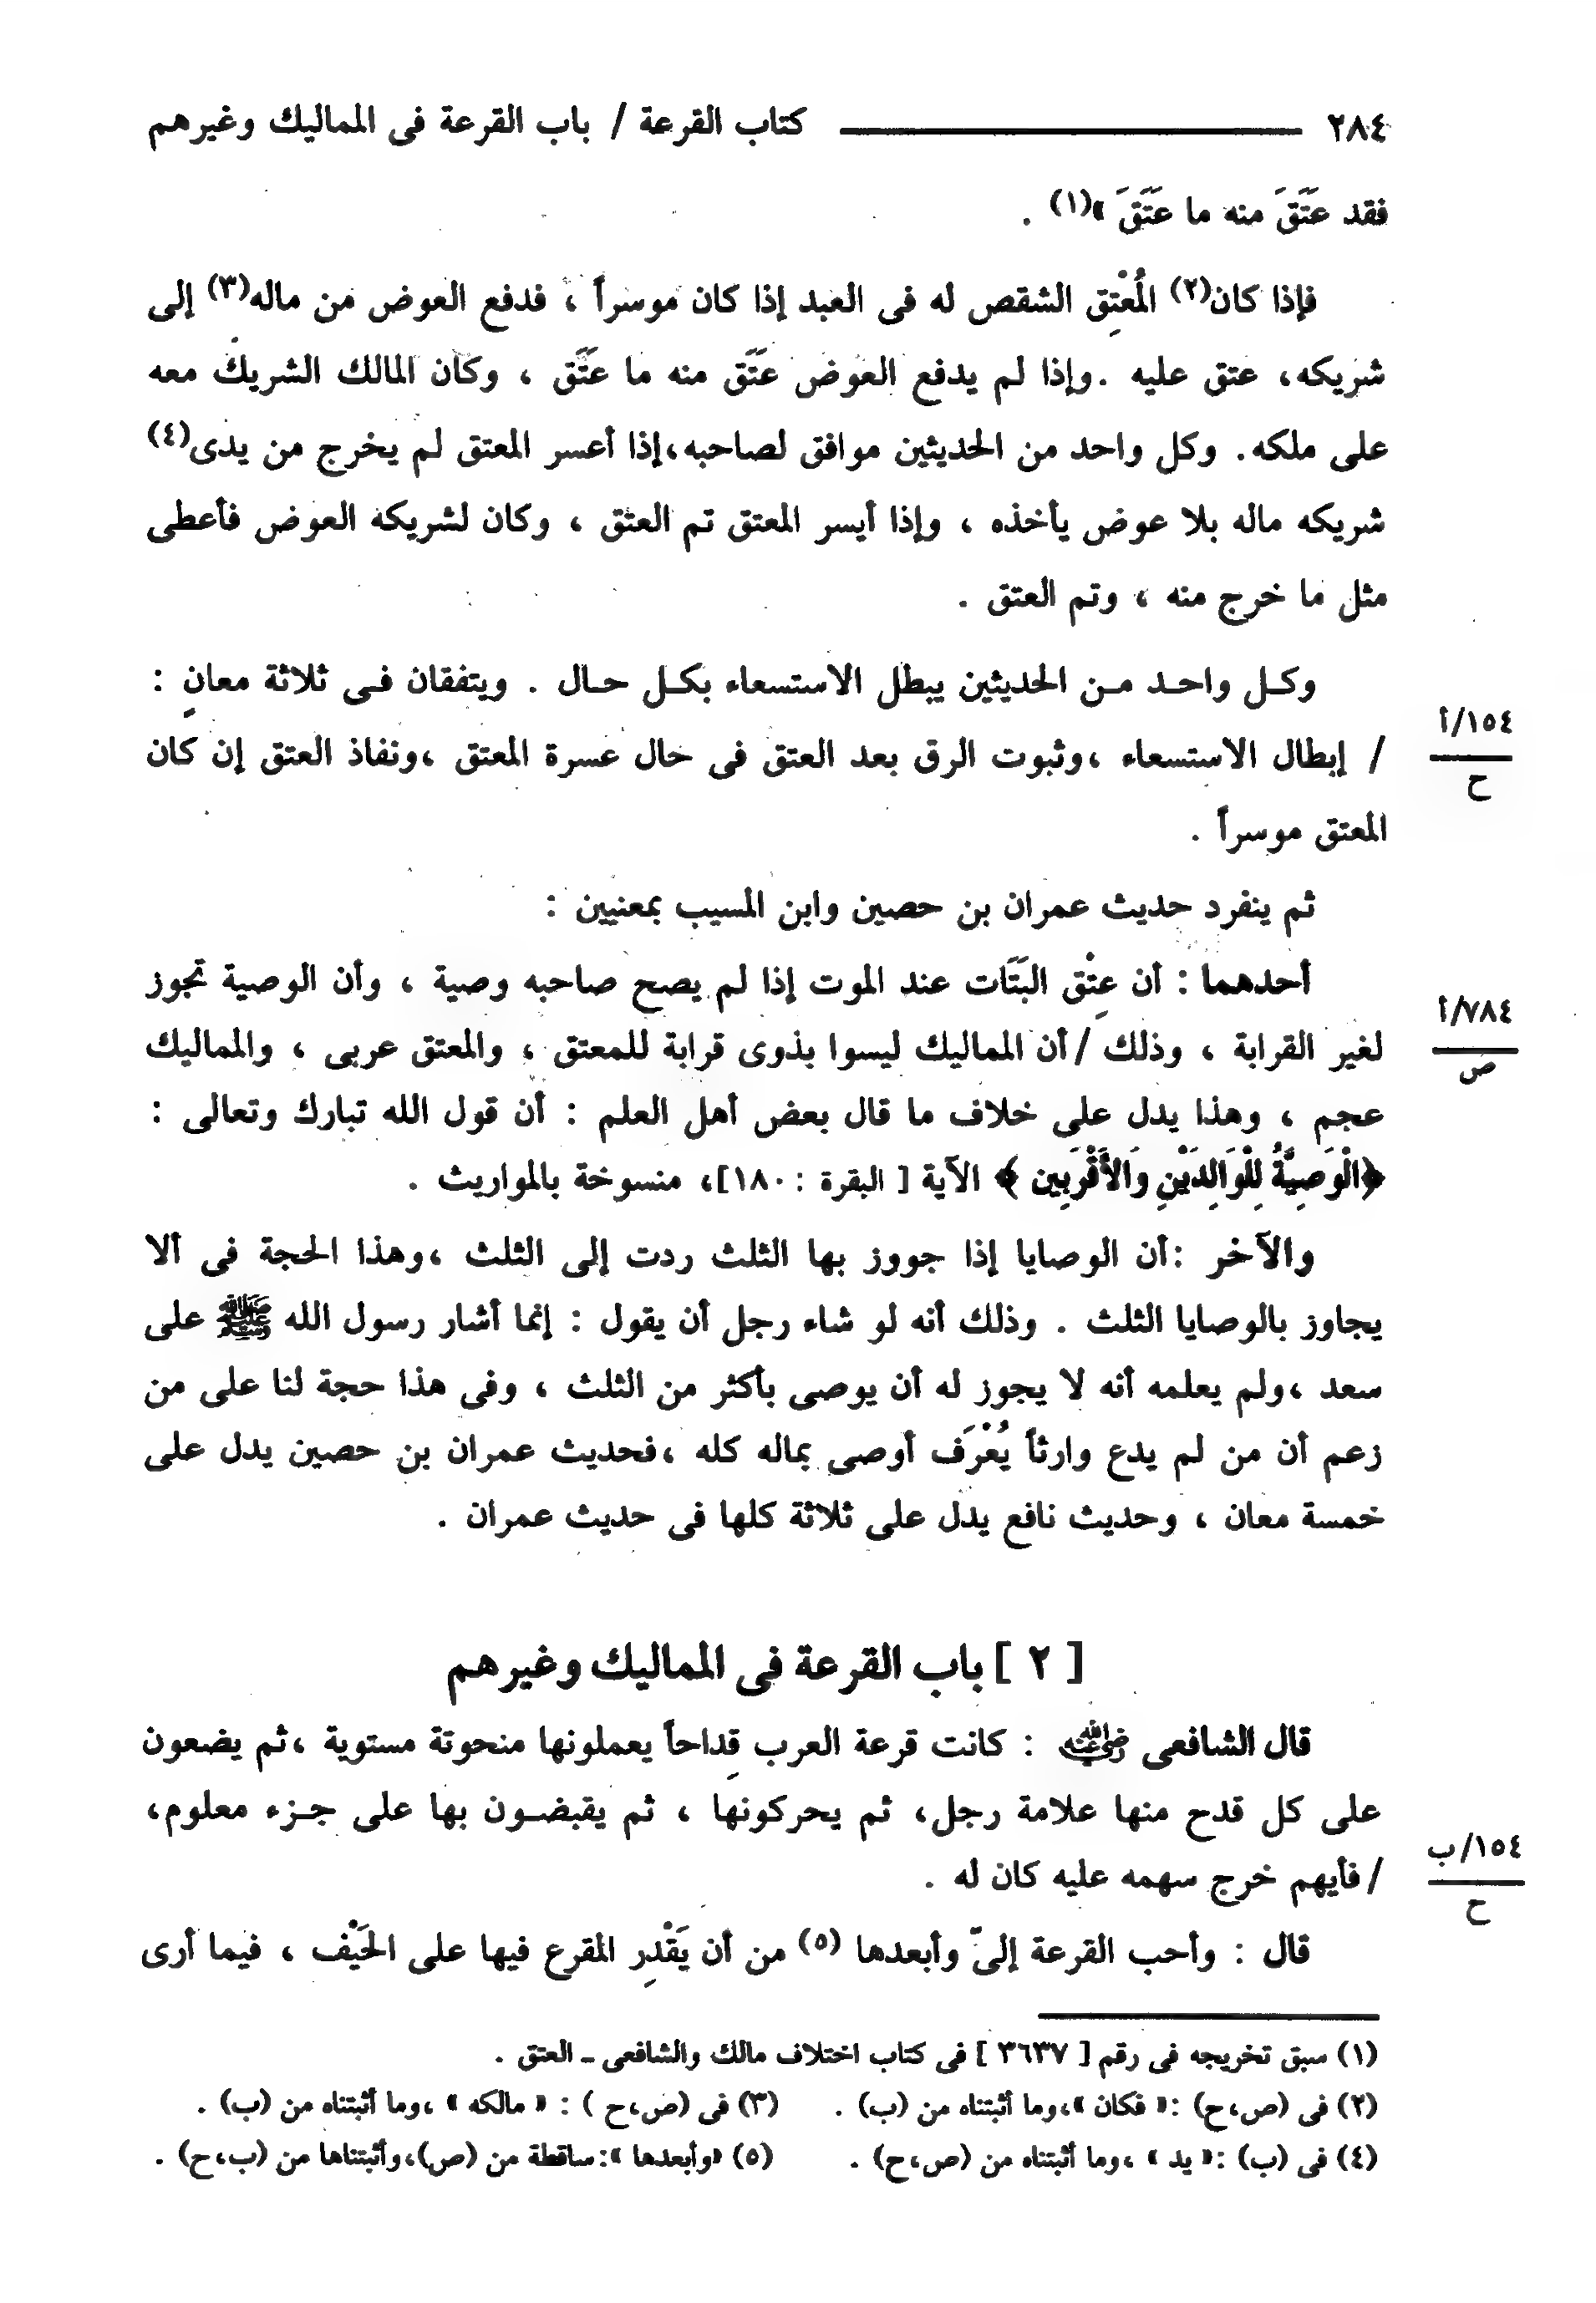 ٢٨٤ ـــــــ كتاب القرعة / باب القرعة فى المماليك وغيرهم
فقد عَتَقَ منه ما عَتَقَ »(١) .
فإذا كان(٢) المُعْتِق الشقص له فى العبد إذا كان موسراً ، فدفع العوض من ماله(٣) إلى
شريكه، عتق عليه .وإذا لم يدفع العوض عَتَق منه ما عَتَق ، وكان المالك الشريك معه
على ملكه. وكل واحد من الحديثين موافق لصاحبه،إذا أعسر المعتق لم يخرج من يدى(٤)
شريكه ماله بلا عوض يأخذه ، وإذا أيسر المعتق تم العتق ، وكان لشريكه العوض فأعطى
مثل ما خرج منه ، وتم العتق .
وكـل واحـد مـن الحديثين يبطل الاستسعاء بكـل حـال . ويتفقان فـى ثلاثة معانٍ :
١٥٤/أ
ح
/ إبطال الاستسعاء ،وثبوت الرق بعد العتق فى حال عسرة المعتق ،ونفاذ العتق إن كان
المعتق موسراً .
ثم ينفرد حديث عمران بن حصين وابن المسيب بمعنيين :
أحدهما : أن عِتْق البَتَات عند الموت إذا لم يصح صاحبه وصية ، وأن الوصية تجوز
٧٨٤/أ
ص
لغير القرابة ، وذلك /أن المماليك ليسوا بذوى قرابة للمعتق ، والمعتق عربى ، والمماليك
عجم ، وهذا يدل على خلاف ما قال بعض أهل العلم : أن قول الله تبارك وتعالى :
﴿الْوَصِيَّةُ لِلْوَالِدَيْنِ وَالأَقْرَبِين ﴾ الآية [ البقرة : ١٨٠]، منسوخة بالمواريث .
والآخر :أن الوصايا إذا جووز بها الثلث ردت إلى الثلث ،وهذا الحجة فى ألا
يجاوز بالوصايا الثلث . وذلك أنه لو شاء رجل أن يقول : إنما أشار رسول الله ﷺ على
سعد ،ولم يعلمه أنه لا يجوز له أن يوصى بأكثر من الثلث ، وفى هذا حجة لنا على من
زعم أن من لم يدع وارثاً يُعْرَف أوصى بماله كله ،فحديث عمران بن حصين يدل على
خمسة معان ، وحديث نافع يدل على ثلاثة كلها فى حديث عمران .
[ ٢ ] باب القرعة فى المماليك وغيرهم
قال الشافعى رضي الله عنه : كانت قرعة العرب قِداحاً يعملونها منحوتة مستوية ،ثم يضعون
على كل قدح منها علامة رجل، ثم يحركونها ، ثم يقبضـون بها على جـزء معلوم،
١٥٤/ب
ح
/فأيهم خرج سهمه عليه كان له .
قال : وأحب القرعة إلىّ وأبعدها (٥) من أن يَقْدِر المقرع فيها على الحَيْف ، فيما أرى
(١) سبق تخريجه فى رقم [ ٣٦٣٧ ] فى كتاب اختلاف مالك والشافعى ـ العتق .
(٢) فى (ص،ح) :« فكان »،وما أثبتناه من (ب) . (٣) فى (ص،ح ) : « مالكه » ،وما أثبتناه من (ب) .
(٤) فى (ب) :« يد » ،وما أثبتناه من (ص،ح) . (٥) «وأبعدها »:ساقطة من (ص)،وأثبتناها من (ب،ح) .